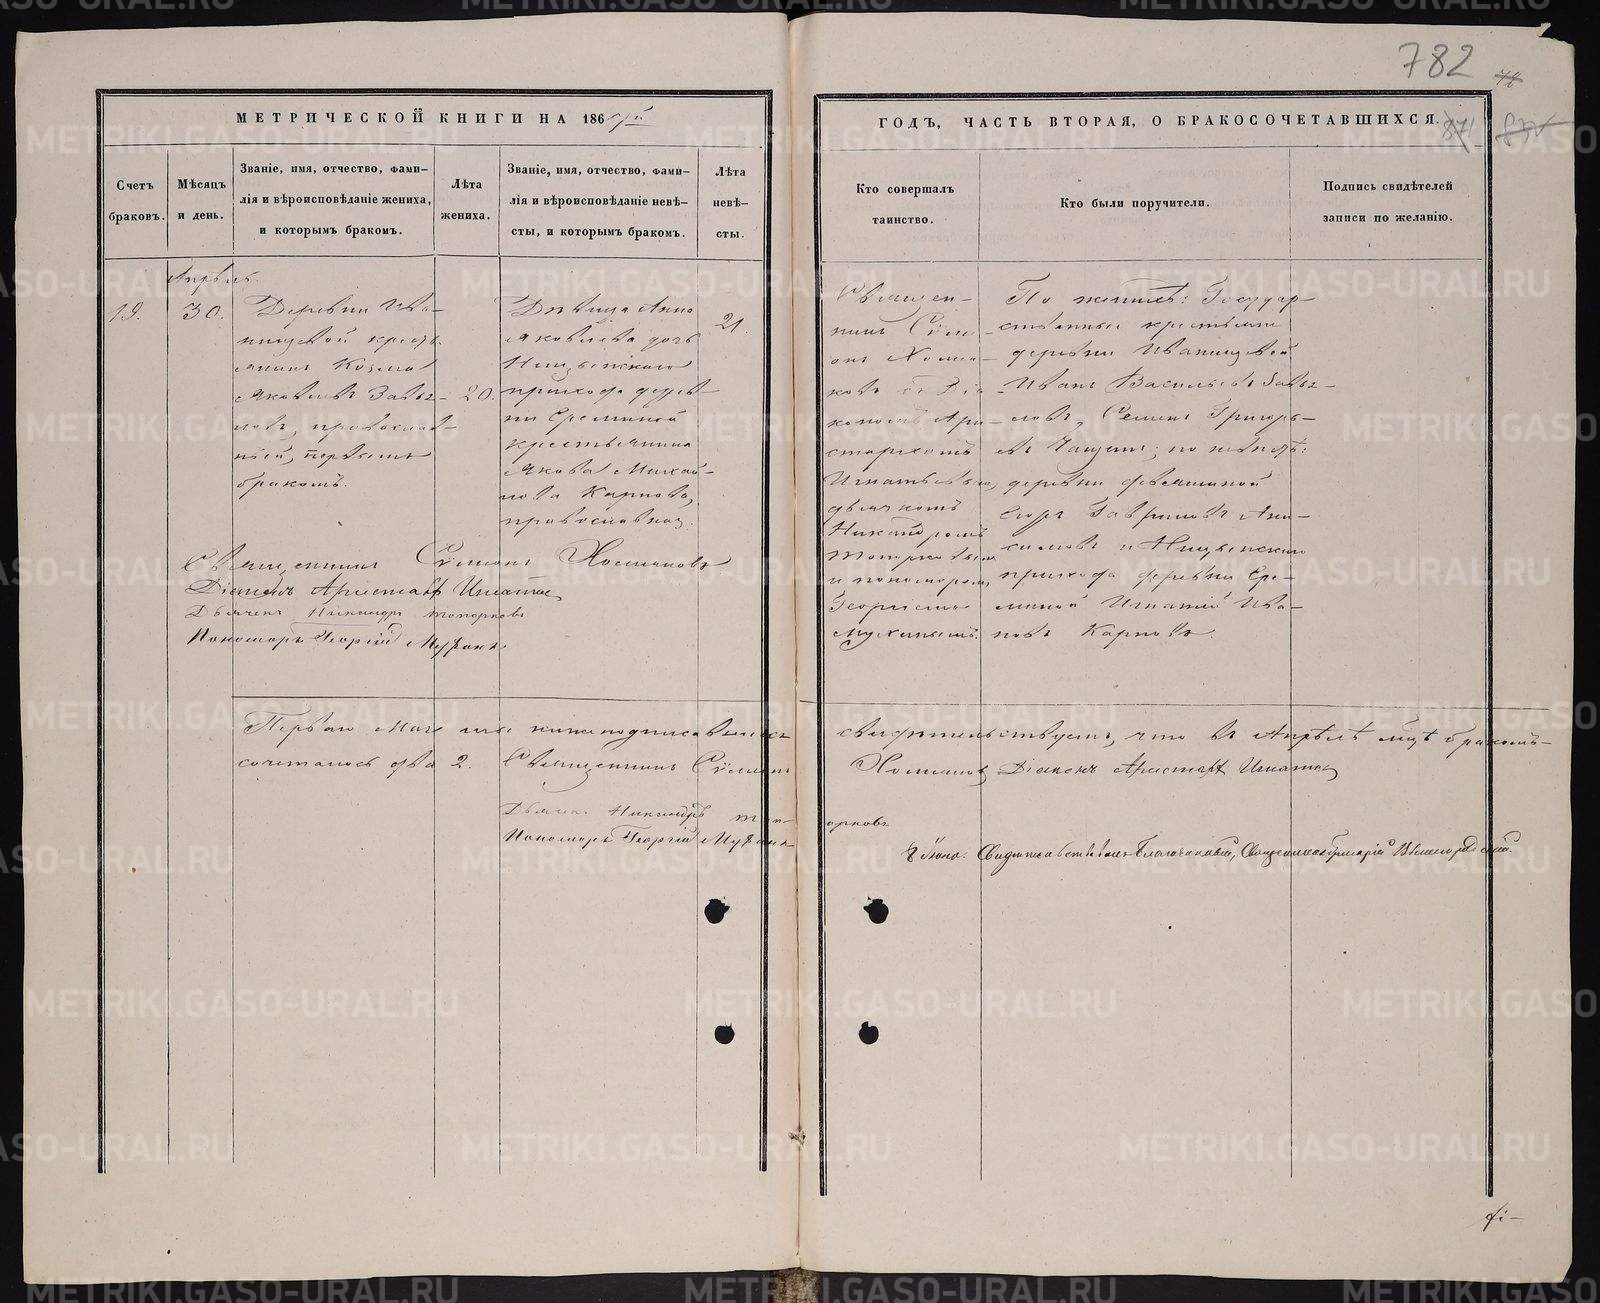 782
МЕТРИЧЕСКОЙ КНИГИ НА 186
ГОДЪ, ЧАСТЬ ВТОРАЯ, О БРАКОСОЧЕТАВШИХСЯ.
Счетъ
браковъ.
Мѣсяцъ
и день.
Званіе, имя, отчество, фами-
лія и вѣроисповѣданіе жениха,
и которымъ бракомъ.
Лѣта
жениха.
Званіе, имя, отчество, фами-
лія и вѣроисповѣданіе невѣ-
сты, и которымъ бракомъ.
Лѣта
невѣ-
сты.
Кто совершалъ
таинство.
Кто были поручители.
Подпись свидѣтелей
записи по желанію.
Апрѣль
19.
30.
Деревни Ива-
нищевой крестъ-
янинъ Козма
Яковлевъ Завья-
ловъ, православ-
ный, первымъ
бракомъ.
20.
Дѣвица Анна
Яковлева дочь
Ницынскаго
прихода дерев-
ни Ереминой
крестьянина
Якова Михай-
лова Карпова,
православная.
21.
Священ-
никъ Сѵме-
онъ Хомя-
ковъ съ Діа-
кономъ Ари-
стархомъ
Игнатьевымъ,
дьячкомъ
Никандромъ
Топорковымъ
и пономаремъ
Георгіемъ
Мухинымъ.
По женихѣ: Государ-
ственные крестьяне
деревни Иванищевой
Иванъ Васильевъ Завья-
ловъ, Семенъ Григорь-
евъ Чащинъ; по невѣстѣ:
деревни
Егоръ Гавриловъ Аки-
симовъ и Ницынскаго
прихода деревни Ере-
миной Игнатій Ива-
новъ Карповъ.
Священникъ Сѵмеонъ Хомяковъ
Діаконъ Аристархъ Игнатьевъ
Дьячекъ Никандръ Топорковъ
Пономарь Георгій Мухинъ
Перваго Мая мы нижеподписавшіеся свидѣтельствуемъ, что въ Апрѣлѣ мцѣ бракомъ
сочеталось два 2. Священникъ Сѵмеонъ Хомяковъ Діаконъ Аристархъ Игнатьевъ
Дьячекъ Никандръ Топорковъ
Пономарь Георгій Мухинъ
8 Іюня. Свидѣтельствовалъ Благочинный, Священникъ